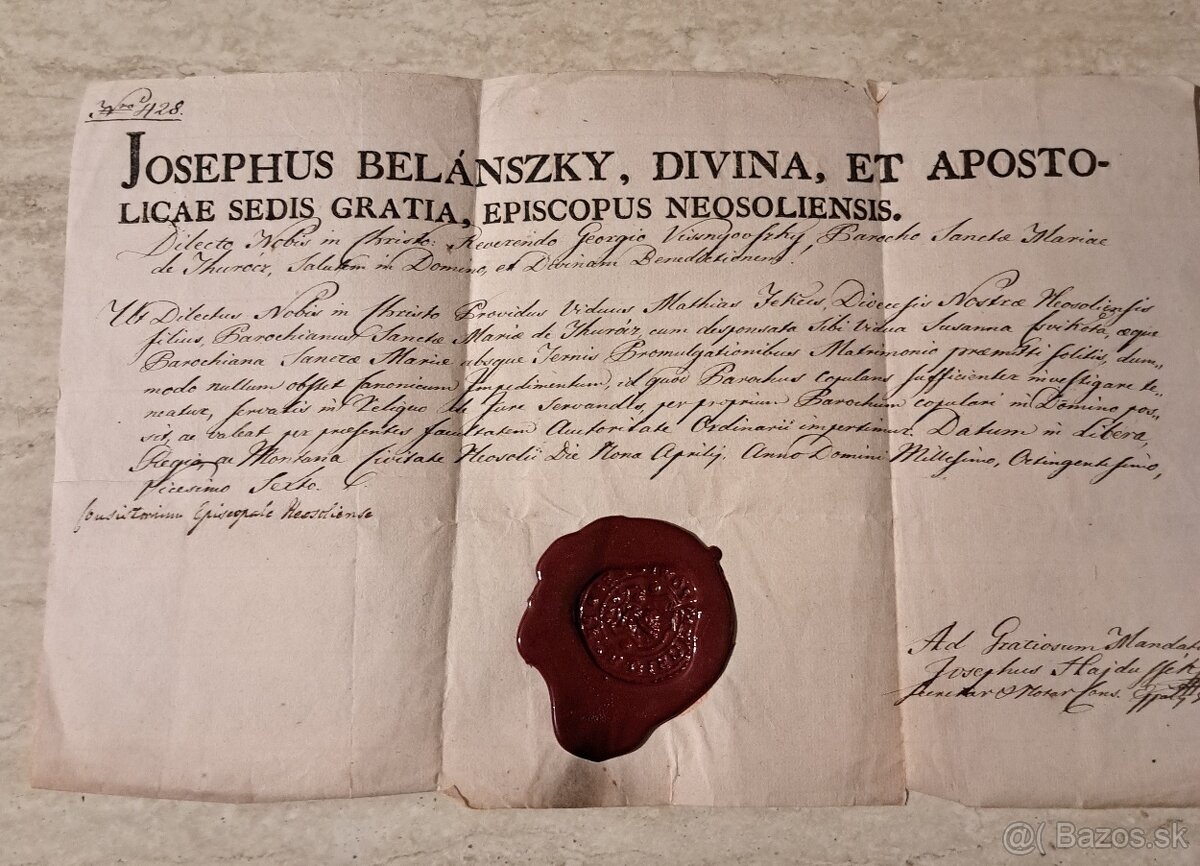 Nro 428.
JOSEPHUS BELÁNSZKY, DIVINA, ET APOSTO-
LICAE SEDIS GRATIA, EPISCOPUS NEOSOLIENSIS.
Dilecto Nobis in Christo: Reverendo Georgio Vissnyovszky, Parocho Sanctæ Mariae
de Thurócz, Salutem in Domino, et Divinam Benedictionem!
Ut Dilectus Nobis in Christo Providus Viduus Mathias Diœcesis Nostræ Neosoliensis
filius, Parochianus Sanctæ Mariæ de Thurócz cum desponsata Sibi Vidua Susanna æque
Parochiana Sanctæ Mariæ absque Ternis Promulgationibus Matrimonio præmitti solitis, dum„
modo nullum obstet Canonicum Impedimentum, id quod Parochus copulans sufficienter investigare te„
neatur, servatis in reliquo de Jure Servandis, per proprium Parochum copulari in Domino pos„
sit, ac valeat per præsentes facultatem Autoritate Ordinarii impertimur. Datum in Libera,
Regia ac Montana Civitate Neosolii Die Nona Aprilis. Anno Domini Millesimo, Octingentesimo,
Vicesimo Sexto.
Consistorium Episcopale Neosoliense
Ad Gratiosum Mandat
Josephus
Secretar & Notar Cons.
@( Bazos.sk